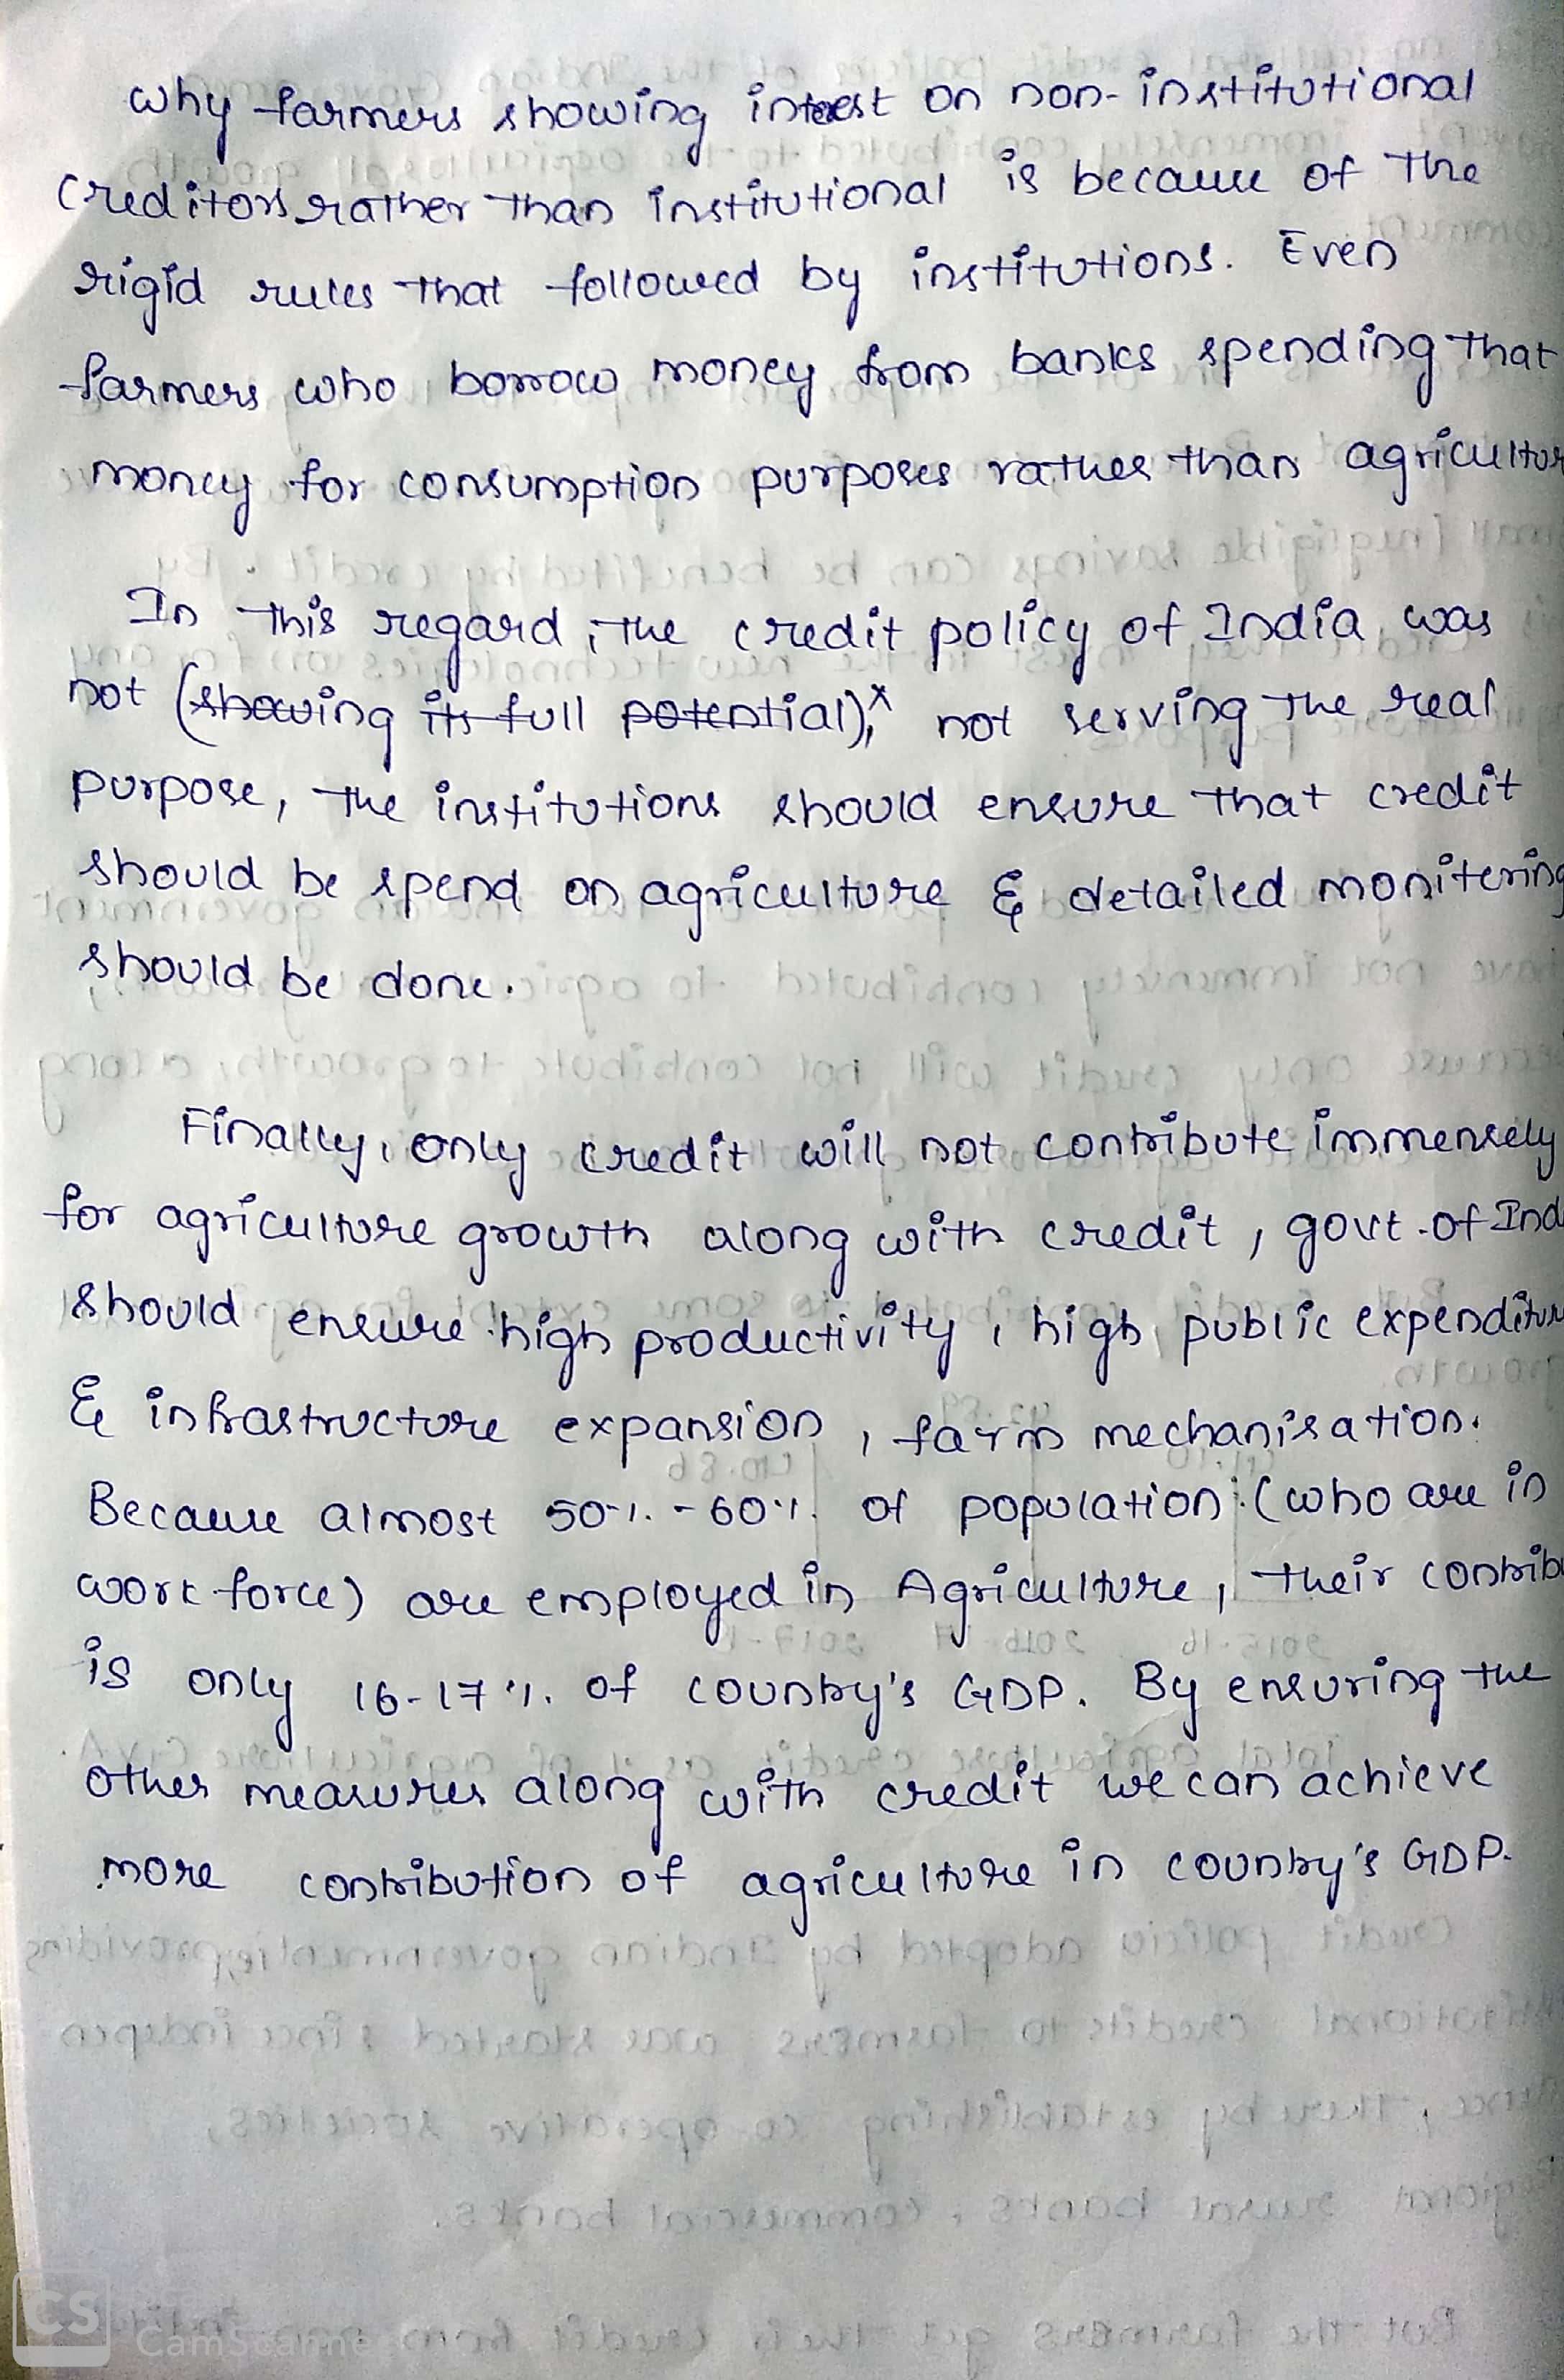 why farmers showing interest on non-institutional
creditors rather than institutional is because of the
rigid rules that followed by institutions. Even
farmers who borrow money from banks spending that
money for consumption purposes rather than agricultur
In this regard, the credit policy of India was
not (showing its full potential), not serving the real
purpose, the institutions should ensure that credit
should be spend on agriculture & detailed monitering
should be done.
Finally, only credit will not contribute immensely
for agriculture growth along with credit, govt. of Ind
should ensure high productivity, high public expenditure
& infrastructure expansion, farm mechanisation.
Because almost 50% - 60% of population (who are in
work force) are employed in Agriculture, their contribu
is only 16-17% of country's GDP. By ensuring the
other measures along with credit we can achieve
more contribution of agriculture in country's GDP.
CS CamScanne